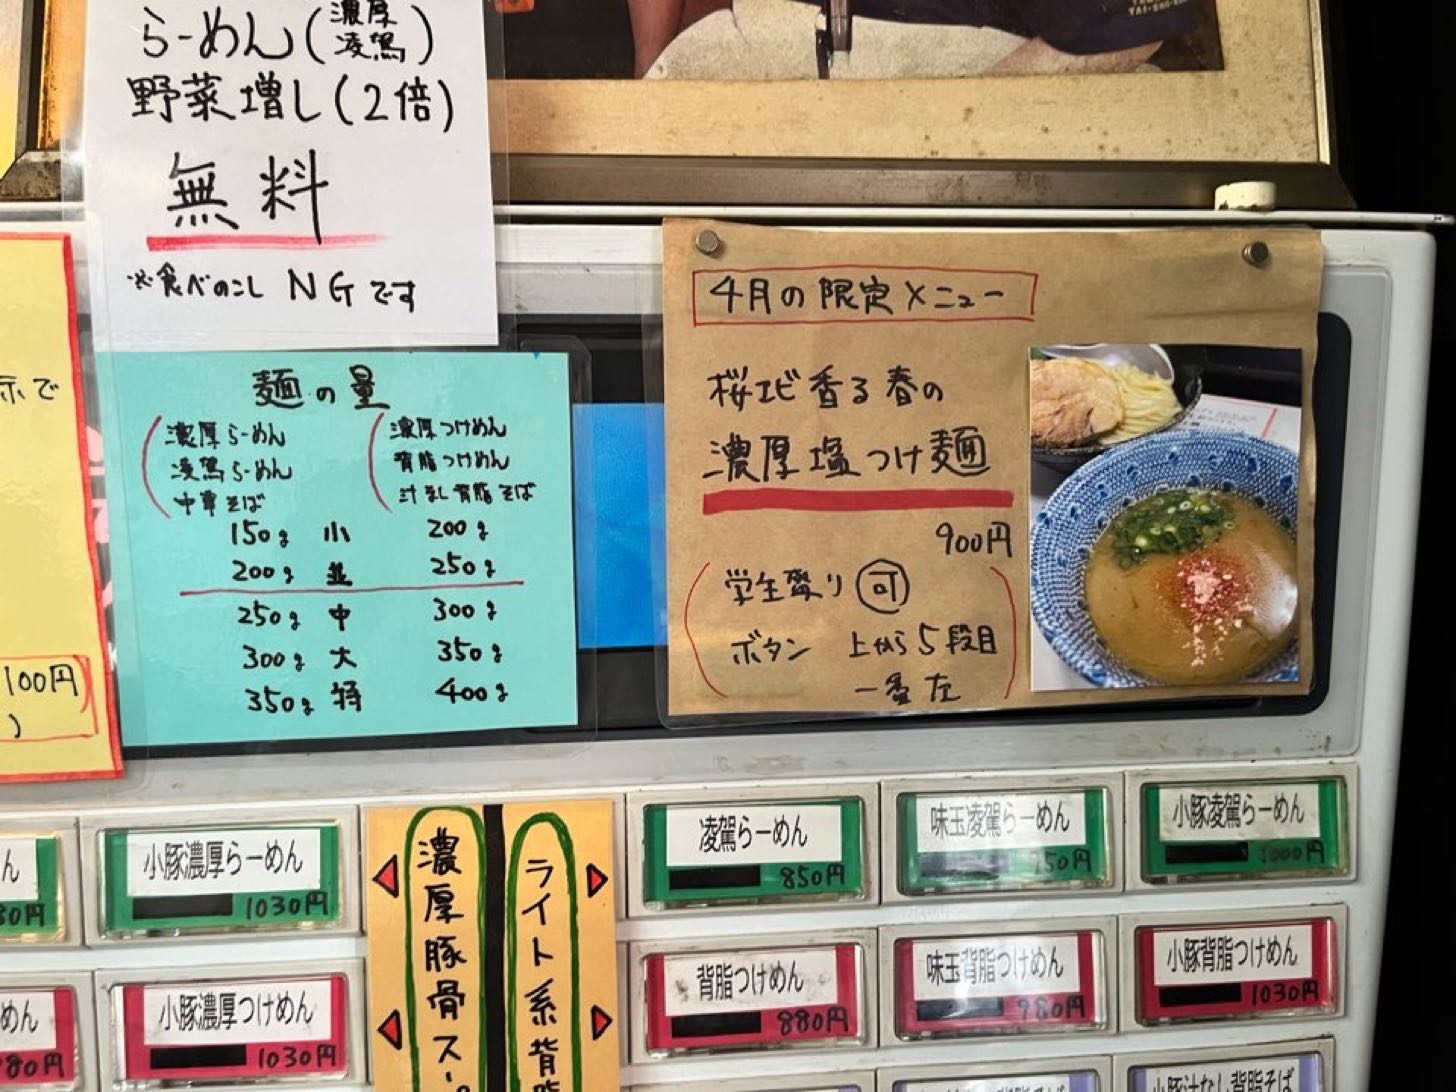 らーめん(濃厚 凌駕)
野菜増し(2倍)
無料
※食べのこしNGです
示で
100円
)
麺の量
(濃厚らーめん
凌駕らーめん
中華そば
(濃厚つけめん
背脂つけめん
汁なし背脂そば
150g 小 200g
200g 並 250g
250g 中 300g
300g 大 350g
350g 特 400g
4月の限定メニュー
桜エビ香る春の
濃厚塩つけ麺
900円
(学生盛り可
ボタン 上から5段目
一番左)
ん
80円
小豚濃厚らーめん
1030円
めん
980円
小豚濃厚つけめん
1030円
濃厚豚骨スー
ライト系背脂
凌駕らーめん
850円
味玉凌駕らーめん
950円
小豚凌駕らーめん
1000円
背脂つけめん
880円
味玉背脂つけめん
980円
小豚背脂つけめん
1030円
小豚汁なし背脂そば